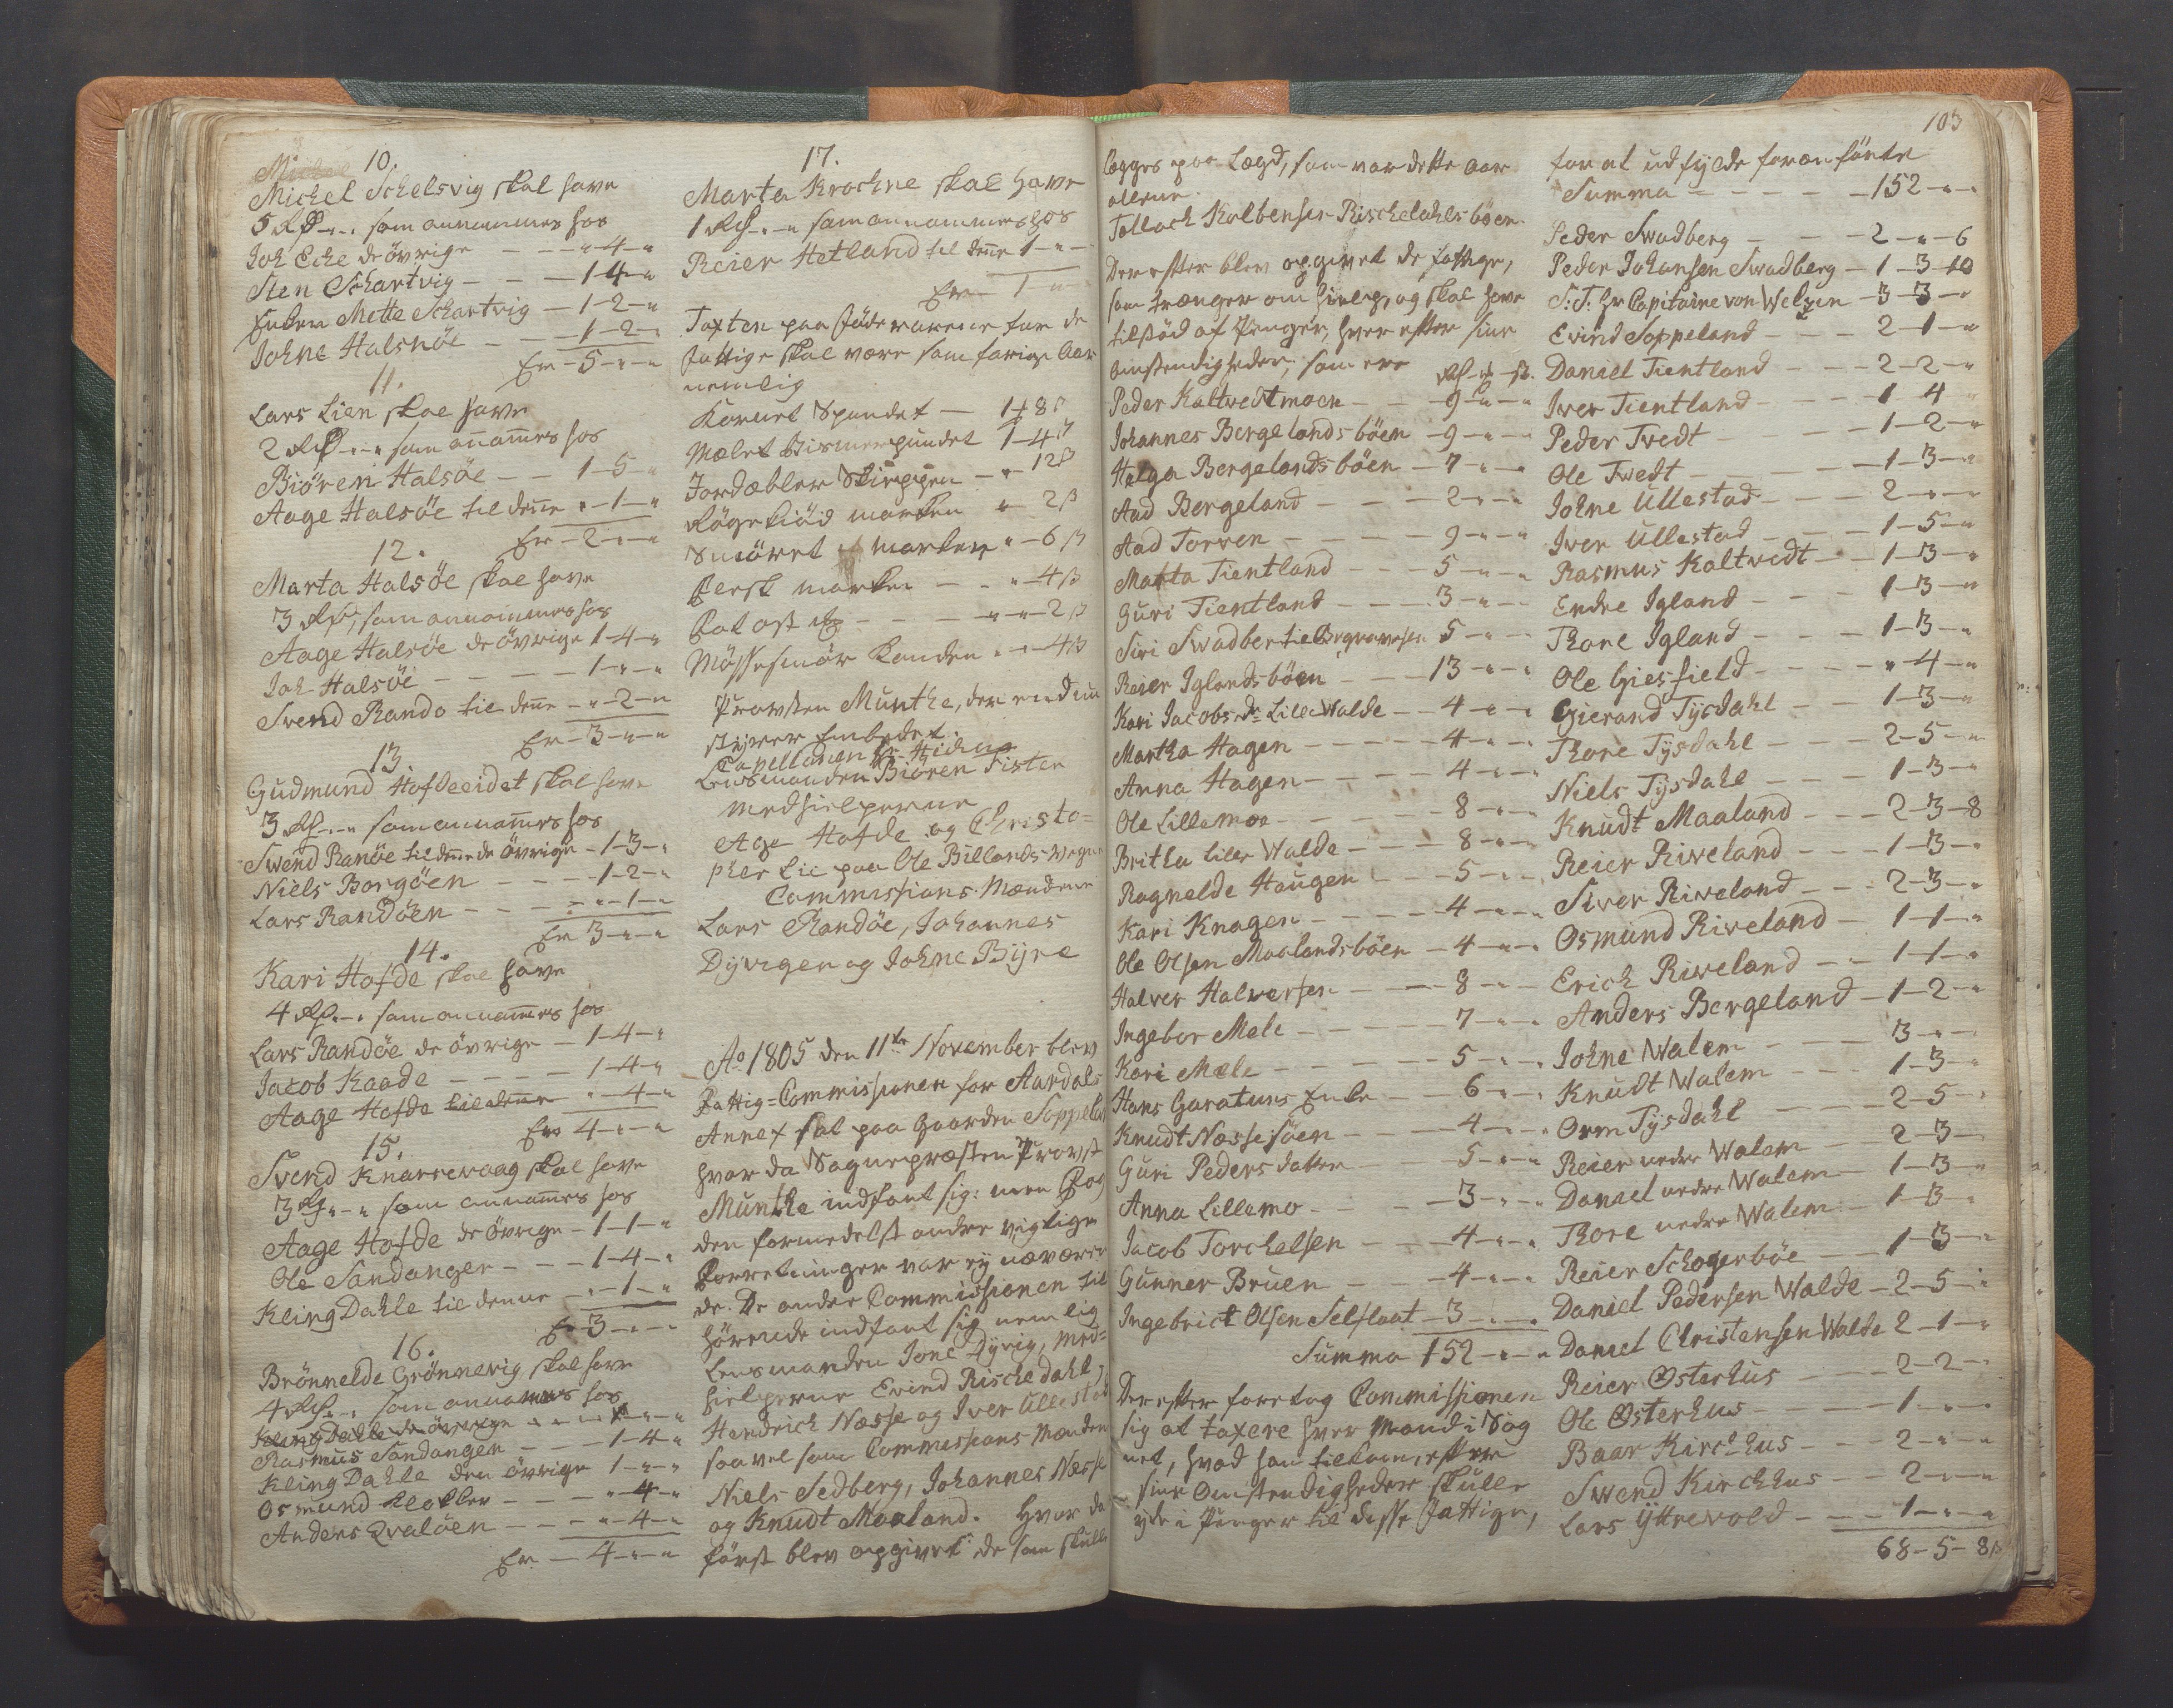 10.
Michel Schelsvig skal have
5 Rd -"-" som annammes hos
Joh Eche de övrige - - - " - 4 - "
Sten Schartvig - - - 1 - 4 - "
Enken Mette Schartvig - 1 - 2 - "
Johne Halsnöe - - - 1 - 2 - "
Er - 5 - " - "
11.
Lars Lien skal have
2 Rd -"-" som anammes hos
Biören Halsöe - - - 1 - 5 - "
Aage Halsöe til denne " - 1 - "
Er - 2 - " - "
12.
Marta Halsöe skal have
3 Rd, som annammes hos
Aage Halsöe de övrige 1 - 4 - "
Joh Halsöe - - - - 1 - " - "
Svend Rando til denne - " - 2 - "
Er - 3 - " - "
13.
Gudmund Hofdeeidet skal have
3 Rd -"-" som annammes hos
Swend Ranöe til denne de övrige - 1 - 3 - "
Niels Borgöen - - - 1 - 2 - "
Lars Randöen - - - " - 1 - "
Er 3 - " - "
14.
Kari Hofde skal have
4 Rd -"-" som annammes hos
Lars Randöe de övrige - 1 - 4 - "
Jacob Kaade - - - - 1 - 4 - "
Aage Hofde til denne " - 4 - "
Er 4 - " - "
15.
Svend Knarrevaag skal have
3 Rd " - " som annammes hos
Aage Hofde de övrige - 1 - 1 - "
Ole Sandanger - - - 1 - 4 - "
Kling Dahle til denne - " - 1 - "
Er 3 - " - "
16.
Brönnelde Grönnevig skal have
4 Rd -"-" som annammes hos
Kling Dahle de övrige
Rasmus Sandanger - - - 1 - 4 - "
Kling Dahle den övrige 1 - " - "
Osmund Klokker - - - " - 4 - "
Anders Qvalöen - - - " - 4 - "
Er - 4 - " - "
17.
Marta Krochne skal have
1 Rd -"-" som annammes hos
Reier Hetland til denne 1 - " - "
Er - 1 - "
Taxten paa Födevarene for de
Fattige skal være som forige Aar
nemlig
Kornet Spandet - 1 ț 8 ß
Mælet Bismerpundet 1 - 4 ß
Jordæbler Skieppen - " - 12 ß
Rögekiöd marken " - 2 ß
Smöret marken " - 6 ß
Fersk marken - - " - 4 ß
Gatost - - - " - " - 2 ß
Mössesmör Kanden " - " - 4 ß
Provsten Munthe, der endnu
styrer Embedet.
Capellanen Hr Hidn
Lensmanden Biören Fister
Medhielperne
Age Hofde og Christo=
pher Lie paa Ole Billands Vegne
Commissions-Mændene
Lars Randöe, Johannes
Dyvigen og Johne Byre
Ao 1805 den 11te November blev
Fattig=Commissionen for Aardals
Annex sat paa Gaarden Soppeland
hvor da Sognepræsten Provst
Munthe indfant sig: men Fog
den formedelst andre vigtige
Forretninger var ey nærværen
de. De andre Commissionen til
hörende indfant sig nemlig
Lensmanden Jone Dyvig, Med=
hielperne Evind Rischedahl,
Hendrich Nesse og Iver Ullestad
saavelsom Commissions Mændene
Niels Sedberg, Johannes Nesse
og Knudt Maaland. Hvor da
först blev opgivet de som skulle
103
lægges paa Lægd, som var dette Aar
allene
Tollach Kolbensen Rischedahlsböen
Derefter blev opgivet de fattige,
som trænger om Hielp, og skal have
tilskud af Penger, hver efter sine
Omstendigheder, som ere Rd - ț - ß.
Peder Kaltvedtmoen - - 9 - " - "
Johannes Bergelandsböen - 9 - " - "
Helga Bergelandsböen - 7 - " - "
Aad Bergeland - - - 2 - " - "
Aad Torven - - - - 9 - " - "
Matta Tientland - - - 5 - " - "
Guri Tientland - - - 3 - " - "
Siri Svadber til Begravelsen 5 - " - "
Reier Iglandsböen - - - 13 - " - "
Kari Jacobsdr Lille Walde - - 4 - " - "
Martha Hagen - - - - 4 - " - "
Anna Hagen - - - - 4 - " - "
Ole Lillemoe - - - - 8 - " - "
Britha Lille Walde - - - 8 - " - "
Ragnelde Haugen - - - 5 - " - "
Kari Knagen - - - - 4 - " - "
Ole Olsen Maalandsböen - 4 - " - "
Halver Halversen - - - 8 - " - "
Ingebor Mele - - - - 7 - " - "
Kari Mele - - - - 5 - " - "
Hans Garatuns Enke - - 6 - " - "
Knudt Nessesöen - - - 4 - " - "
Guri Pedersdatter - - - 5 - " - "
Anna Lillemo - - - - 3 - " - "
Jacob Torchelsen - - - 4 - " - "
Gunner Bruen - - - 4 - " - "
Ingebrict Olsen Selslaat - 3 - " - "
Summa 152 - " - "
Derefter foretog Commissionen
sig at taxere hver Mand i Sog
net, hvad han tilkom, efter
sine Omstendigheder skulle
yde i Penger til disse Fattige,
for at udfylde foranförte
Summa - - - - - 152 - " - "
Peder Svadberg - - - 2 - " - 6
Peder Johansen Svadberg - 1 - 3 - 10
S: T: Hr Capitaine von Welzen - 3 - 3 - "
Evind Soppeland - - - 2 - 1 - "
Daniel Tientland - - - 2 - 2 - "
Iver Tientland - - - 1 - 4 "
Peder Tvedt - - - 1 - 2 - "
Ole Tvedt - - - - 1 - 3 - "
Johne Ullestad - - - 2 - " - "
Iver Ullestad - - - 1 - 5 - "
Rasmus Kaltvedt - - 1 - 3 - "
Endre Igland - - - 1 - 3 - "
Thore Igland - - - 1 - 3 - "
Ole Giesfield - - - " - 4 - "
Gierand Tysdahl - - 1 - 3 - "
Thore Tysdahl - - - 2 - 5 - "
Niels Tysdahl - - - 1 - 3 - "
Knudt Maaland - - 2 - 3 - 8
Reier Riveland - - - 1 - 3 - "
Siver Riveland - - - 2 - 3 - "
Osmund Riveland - 1 - 1 - "
Erich Riveland - - 1 - 1 - "
Anders Bergeland - 1 - 2 - "
Johne Walem - - - 3 - " - "
Knudt Walem - - - 1 - 3 - "
Orm Tysdahl - - - 2 - 5 - "
Reier nedre Walem - 2 - 3 - "
Daniel nedre Walem - 1 - 3 - "
Thore nedre Walem - 1 - 3 - "
Reier Schogerböe - - 1 - 3 - "
Daniel Pedersen Walde - 2 - 5 - "
Daniel Christensen Walde 2 - 1 - "
Reier Østerhus - - - 2 - 2 - "
Ole Østerhus - - - 1 - " - "
Baar Kirchhus - - - 2 - " - "
Swend Kirchhus - - 2 - " - "
Lars Yttrevold - - - 1 - " - "
68 - 5 - 8 ß